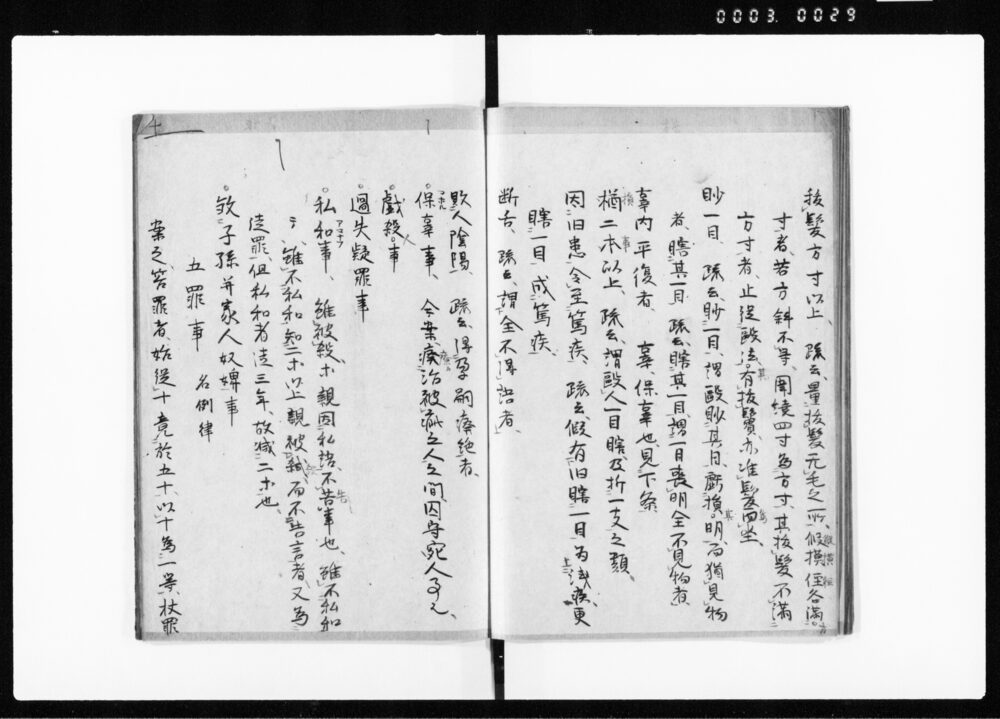 0003. 0029
拔髮方寸以上、疏云、量拔髮元毛之所、縱横径各満方
寸者、若方斜不等、圍繞四寸為方寸、其拔髮不満
方寸者、止從毆法、其有拔鬢、亦准髮為坐、
眇一目、疏云、眇一目、謂毆眇其目、虧損其明、而猶見物
者、瞎其一目、疏云、瞎其一目、謂一目喪明全不見物者、
辜内平復者、辜、保辜也、見下条
損二事以上、疏云、謂毆人一目瞎、及折一支之類、
因旧患令至篤疾、疏云、假有旧瞎一目為残疾、更
瞎一目成篤疾、
断舌、疏云、謂全不得語者、
毀人陰陽、疏云、孕嗣廃絶者、
保辜事、今案、療治被疵之人之間、因守宛人了
戲殺事
過失疑罪事
私和事、雖被殺、親因私語、不告事也、雖不私和
テ、雖不私和知二等以上親被殺而不告言者、又為
徒罪、但私和者徒三年、故減二等也、
子孫并家人奴婢事
五罪事 名例律
案之、笞罪者、始從十竟於五十、以十為一等、杖罪